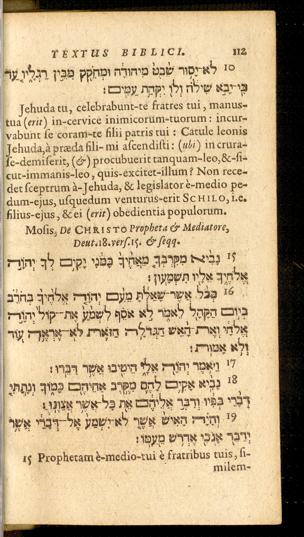 TEXTUS BIBLICI. 112
10 לא־יסור שבט מיהודה ומחקק מבין רגליו עד
כי־יבא שילה ולו יקהת עמים:
Jehuda tu, celebrabunt-te fratres tui, manus-
tua (erit) in-cervice inimicorum-tuorum: incur-
vabunt se coram-te filii patris tui: Catule leonis
Jehuda, à præda fili-mi ascendisti: (ubi) in crura-
se-demiserit, (&) procubuerit tanquam-leo, &-si-
cut-immanis-leo, quis-excitet-illum? Non rece-
det sceptrum à-Jehuda, & legislator è-medio pe-
dum-ejus, usquedum venturus-erit SCHILO, i.e.
filius-ejus, & ei (erit) obedientia populorum.
Mosis, De CHRISTO Propheta & Mediatore,
Deut. 18. vers. 15. & seqq.
15 נביא מקרבך מאחיך כמני יקים לך יהוה
אלהיך אליו תשמעון:
16 ככל אשר־שאלת מעם יהוה אלהיך בחרב
ביום הקהל לאמר לא אסף לשמע את־קול יהוה
אלהי ואת־האש הגדלה הזאת לא־אראה עוד
ולא אמות:
17 ויאמר יהוה אלי היטיבו אשר דברו:
18 נביא אקים להם מקרב אחיהם כמוך ונתתי
דברי בפיו ודבר אליהם את כל־אשר אצונו:
19 והיה האיש אשר לא־ישמע אל־דברי אשר
ידבר אנכי אדרש מעמו:
15 Prophetam è-medio-tui è fratribus tuis, si-
milem-